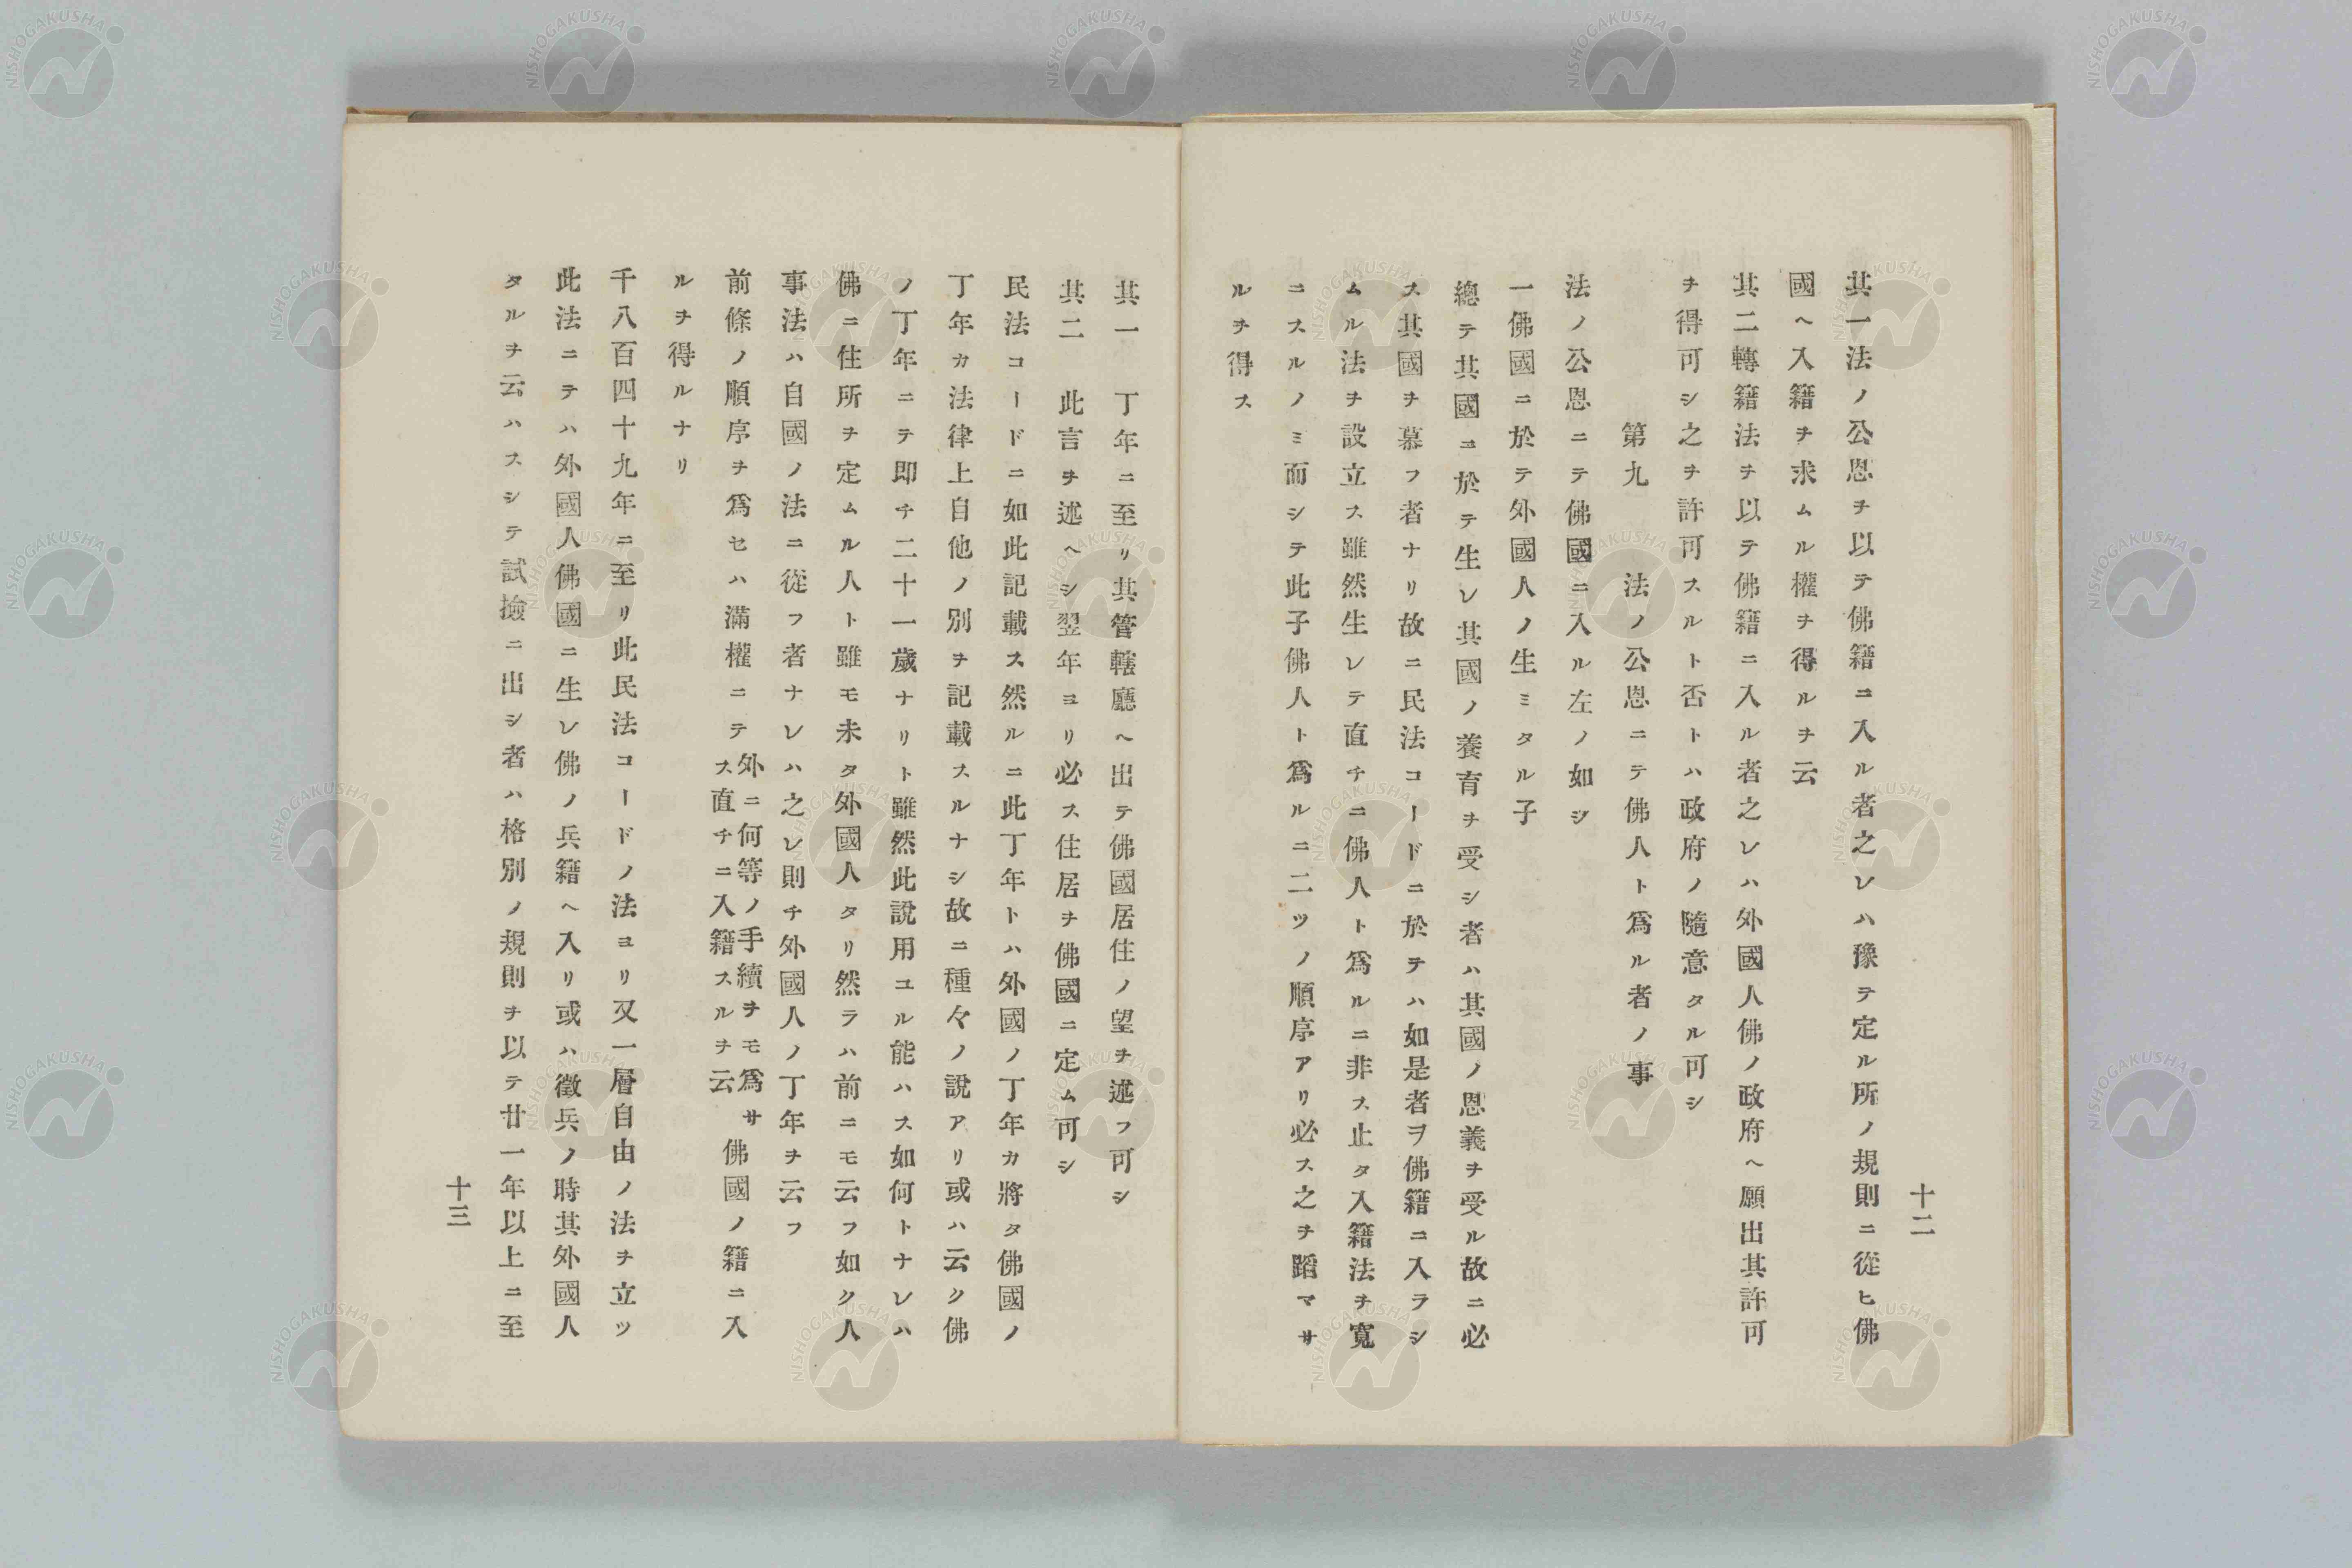 十二
其一法ノ公恩ヲ以テ佛籍ニ入ル者之レハ豫テ定ル所ノ規則ニ從ヒ佛
國ヘ入籍ヲ求ムル權ヲ得ルヲ云
其二轉籍法ヲ以テ佛籍ニ入ル者之レハ外國人佛ノ政府ヘ願出其許可
ヲ得可シ之ヲ許可スルト否トハ政府ノ隨意タル可シ
第九 法ノ公恩ニテ佛人ト爲ル者ノ事
法ノ公恩ニテ佛國ニ入ル左ノ如シ
一佛國ニ於テ外國人ノ生ミタル子
總テ其國ニ於テ生レ其國ノ養育ヲ受シ者ハ其國ノ恩義ヲ受ル故ニ必
ス其國ヲ慕フ者ナリ故ニ民法コードニ於テハ如是者ヲ佛籍ニ入ラシ
ムル法ヲ設立ス雖然生レテ直チニ佛人ト爲ルニ非ス止タ入籍法ヲ寬
ニスルノミ而シテ此子佛人ト爲ルニ二ツノ順序アリ必ス之ヲ蹈マサ
ルヲ得ス
其一 丁年ニ至リ其管轄廳ヘ出テ佛國居住ノ望ヲ述フ可シ
其二 此言ヲ述ヘシ翌年ヨリ必ス住居ヲ佛國ニ定ム可シ
民法コードニ如此記載ス然ルニ此丁年トハ外國ノ丁年カ將タ佛國ノ
丁年カ法律上自他ノ別ヲ記載スルナシ故ニ種々ノ說アリ或ハ云ク佛
ノ丁年ニテ即チ二十一歲ナリト雖然此說用ユル能ハス如何トナレハ
佛ニ住所ヲ定ムル人ト雖モ未タ外國人タリ然ラハ前ニモ云フ如ク人
事法ハ自國ノ法ニ從フ者ナレハ之レ則チ外國人ノ丁年ヲ云フ
前條ノ順序ヲ爲セハ滿權ニテ外ニ何等ノ手續ヲモ爲サス直チニ入籍スルヲ云佛國ノ籍ニ入
ルヲ得ルナリ
千八百四十九年ニ至リ此民法コードノ法ヨリ又一層自由ノ法ヲ立ツ
此法ニテハ外國人佛國ニ生レ佛ノ兵籍ヘ入リ或ハ徵兵ノ時其外國人
タルヲ云ハスシテ試撿ニ出シ者ハ格別ノ規則ヲ以テ廿一年以上ニ至
十三
NISHOGAKUSHA